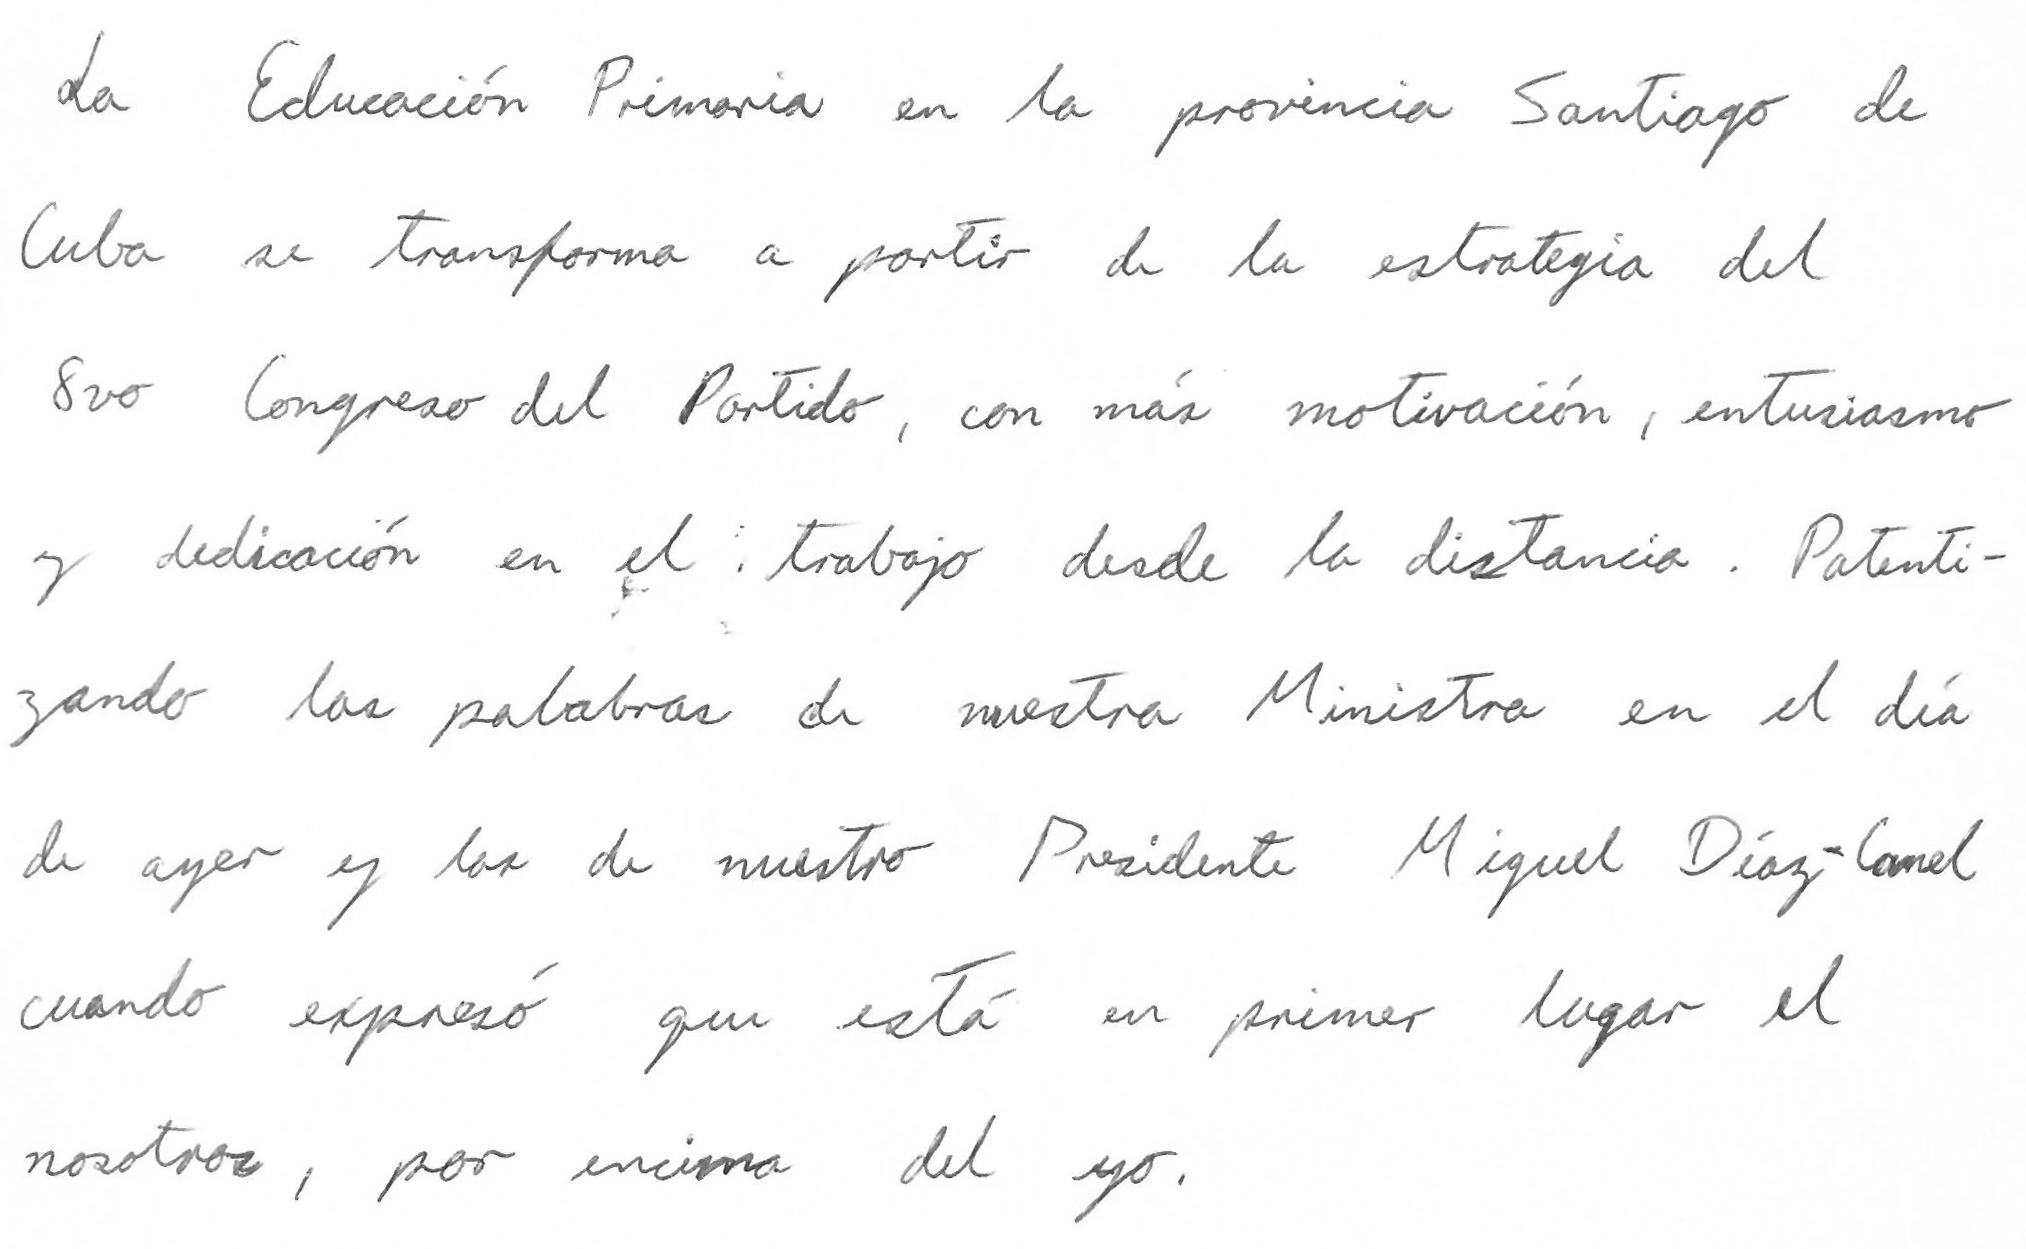 La Educación Primaria en la provincia Santiago de
Cuba se transforma a partir de la estrategia del
8vo Congreso del Partido, con más motivación, entusiasmo
y dedicación en el trabajo desde la distancia. Patenti-
zando las palabras de nuestra Ministra en el día
de ayer y las de nuestro Presidente Miguel Díaz-Canel
cuando expresó que está en primer lugar el
nosotros, por encima del yo.